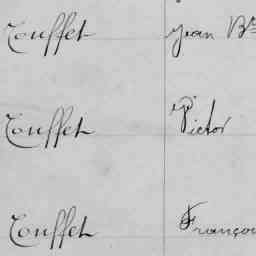 Touffet Jean Bte
Touffet Victor
Touffet Françou